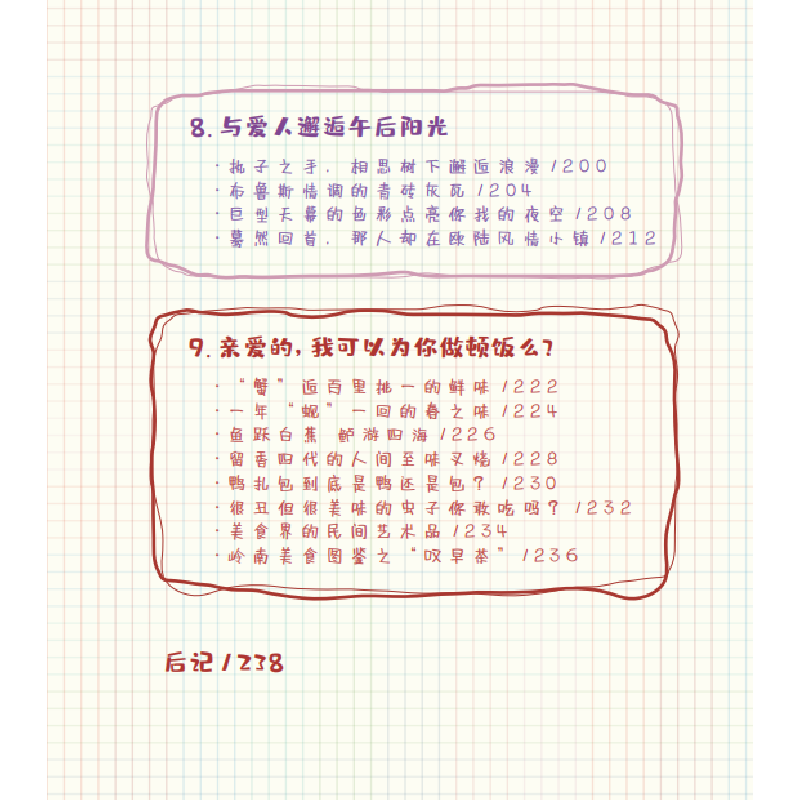 8. 与爱人邂逅午后阳光
· 执子之手，相思树下邂逅浪漫 /200
· 布鲁斯情调的青砖灰瓦 /204
· 巨型天幕的色彩点亮你我的夜空 /208
· 蓦然回首，那人却在欧陆风情小镇 /212
9. 亲爱的，我可以为你做顿饭么？
· “蟹”逅百里挑一的鲜味 /222
· 一年“蚬”一回的春之味 /224
· 鱼跃白蕉 鲈游四海 /226
· 留香四代的人间至味叉烧 /228
· 鸭扎包到底是鸭还是包？ /230
· 很丑但很美味的虫子你敢吃吗？ /232
· 美食界的民间艺术品 /234
· 岭南美食图鉴之“叹早茶” /236
后记 /238